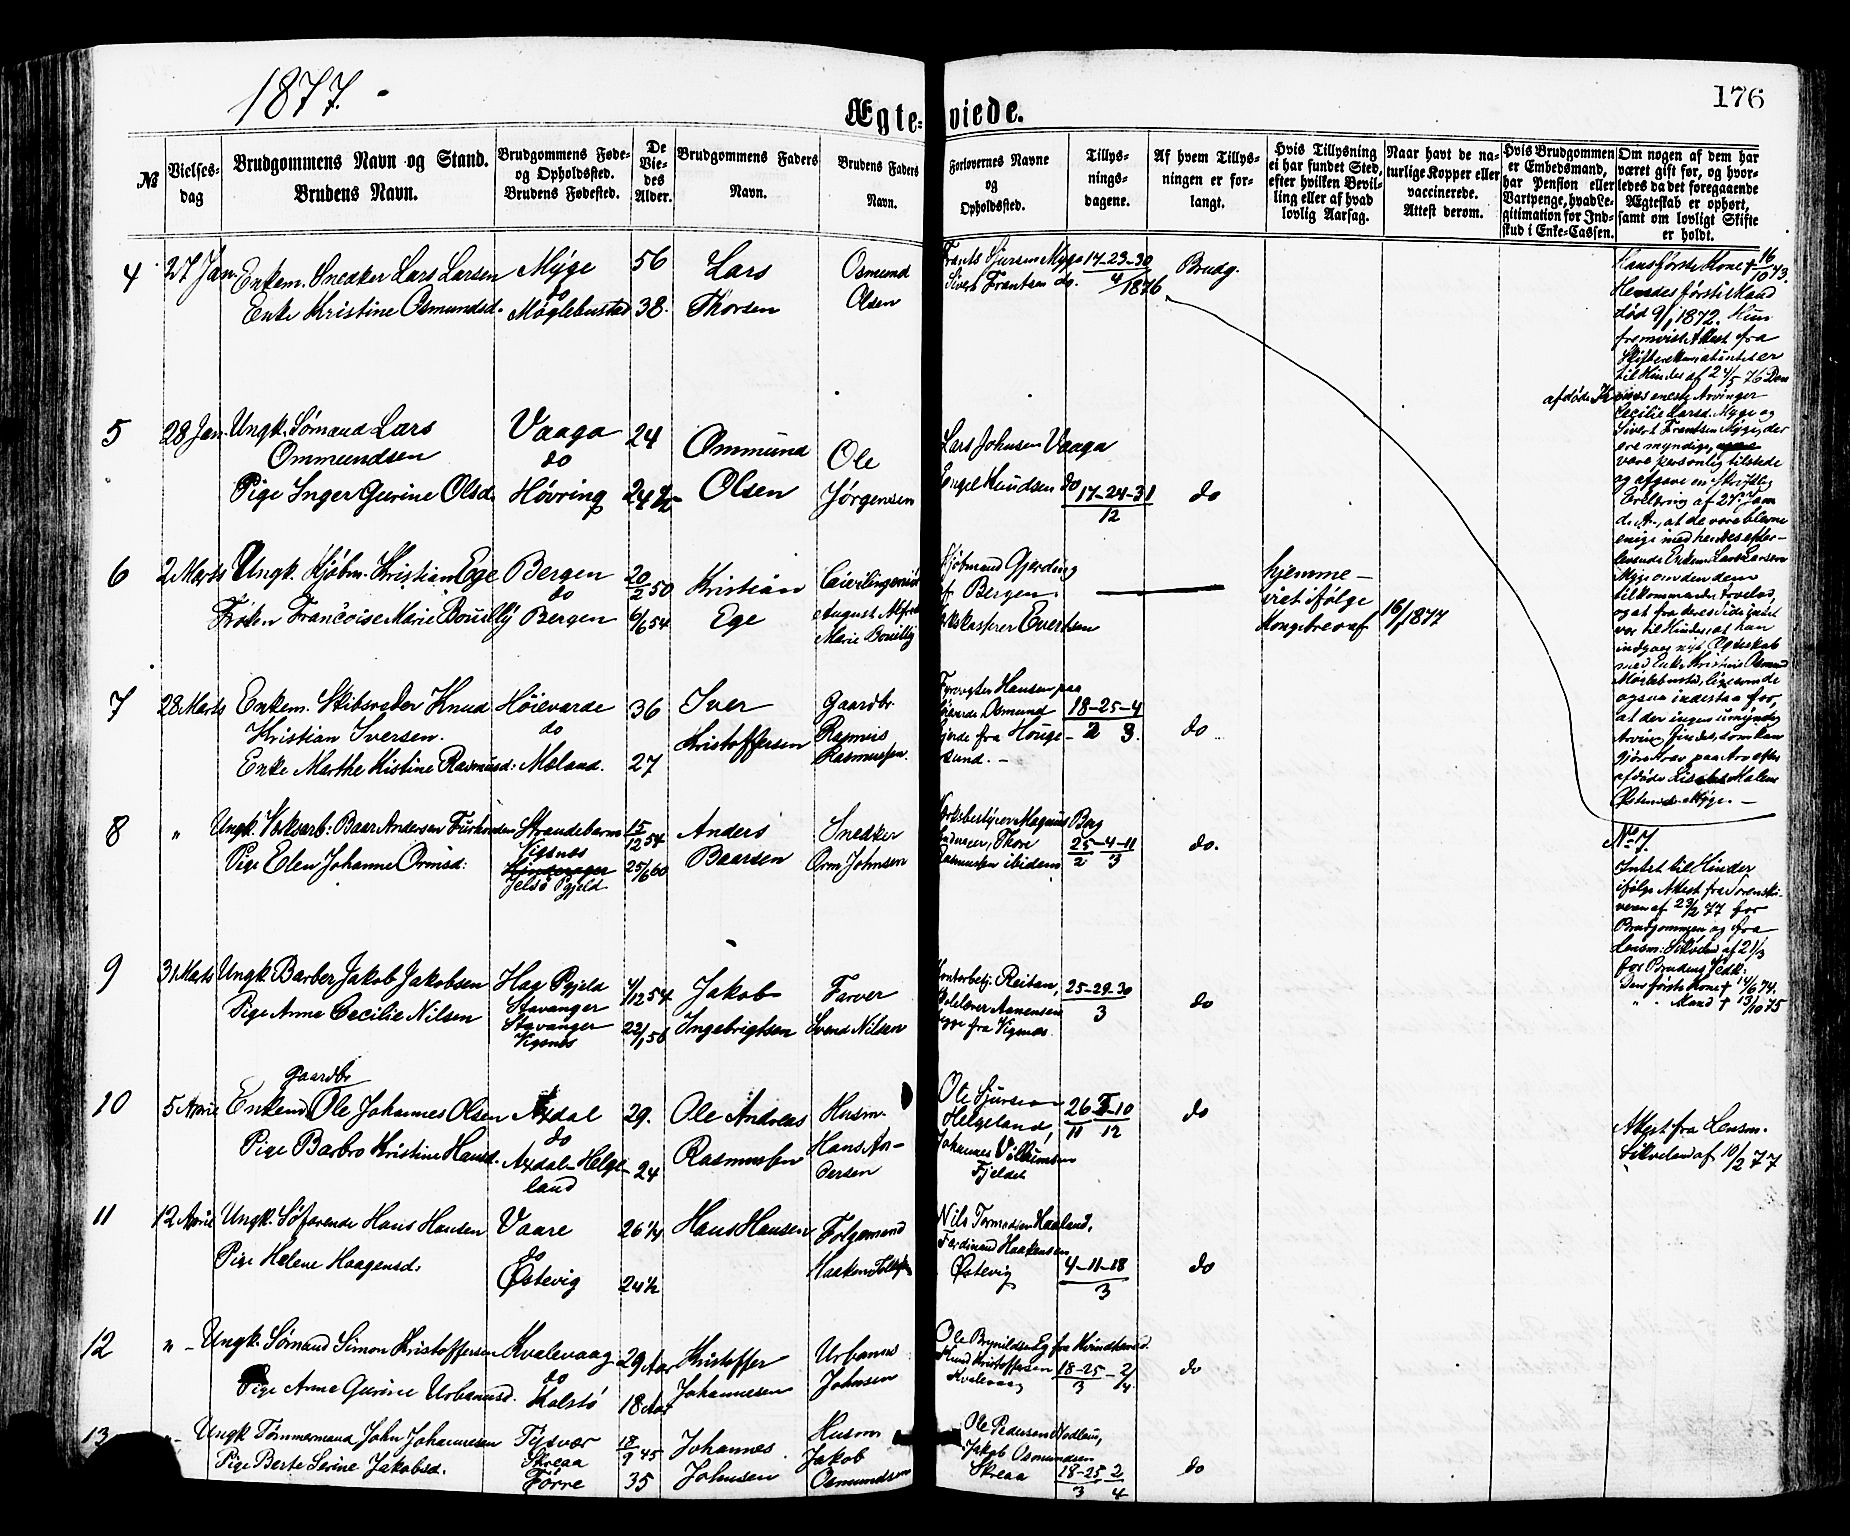 1877.
176
Ægte-viede.
№
Vielses-dag
Brudgommens Navn og Stand.
Brudens Navn.
Brudgommens Føde- og Opholdssted.
Brudens Fødested.
De Viedes Alder.
Brudgommens Faders Navn.
Brudens Faders Navn.
Forlovernes Navne og Opholdssted.
Tillysningsdagene.
Af hvem Tillysningen er forlangt.
Hvis Tillysning ei har fundet Sted, efter hvilken Bevilling eller af hvad lovlig Aarsag.
Naar havt de naturlige Kopper eller vaccinerede. Attest derom.
Hvis Brudgommen er Embedsmand, har Pension eller Vartpenge, hvad Legitimation for Indskud i Enke-Cassen.
Om nogen af dem har været gift før, og hvorledes da det foregaaende Ægteskab er ophørt, samt om lovligt Skifte er holdt.
4 27 Jan. Enkem. Snedker Lars Larsen Myge 56 Lars Osmund
do
Enke Kristine Osmundsd. Møglebustad 38. Thorsen Olsen
Frants Sjursen Myge
Sivert Frantsen do.
17-23-30
1876
Brudg.
Hans første Kone † 16/10 73.
Hendes første Mand
død 9/1 1872. Hun
fremviste Attest fra
til Hinder af 24/5 76 Den
afdøde Kones eneste Arvinger
Cecilie Larsd. Myge og
Sivert Frantsen Myge, der
ere myndige,
vare personlig tilstede
og afgave en skriftlig
Erklæring af 27 Jan
d. A., at de vare blevne
enige med hendes efter-
levende Enkem. Lars Larsen
Myge om den dem
tilkommende Arvelod,
og at fra deres Side intet
var til Hinder, at han
indgaar nyt Ægteskab
med Enke Kristine Osmund
Møglebustad, ligesom de
ogsaa indestaa for,
at der ingen umyndig
Arving findes, som kan
gjøre Krav paa Arv efter
afdøde Malene
Østensd. Myge. —
5 28 Jan. Ungk. Sømand Lars Vaaga 24 Ommund Ole
Ommundsen do
Pige Inger Gurine Olsd. Høvring 24 1/2 Olsen Jørgensen
Lars Johnsen Vaaga
Engel Knudsen do
17-24-31
12
do
6 2 Marts Ungk. Kjøbm. Kristian Ege Bergen 20/2 50 Kristian Civilingeniør
do
Frøken Francoise Marie Bouilly Bergen 6/6 54 Ege August Alfred
Marie Bouilly
Kjøbmand Gjerding
af Bergen.
Evertsen
hjemme-
viet ifølge
Kongebrev af 16/1 1877
7 28 Marts Enkem. Skibsreder Knud Høievarde 36 Iver Gaardbr.
Kristian Iversen. do Kristoffersen Rasmus
Enke Marthe Kistine Rasmusd. Meland. 27 Rasmussen.
Fyrvogter Hansen paa
Høievarde Osmund
Gjerde fra Houge-
sund. —
18-25-4
2 3.
do
8 " Ungk. Baar Andersen Strandebarm 15/12 54 Anders Snedker
Vigsnes
Pige Elen Johanne Ormsd: 25/6 60 Baarsen Orm Johnsen
Jelsø Pgjeld
Værksbestyrer Magnus Berg
Thore
Rasmussen ibidem
25-4-11
2 3
do.
No 7.
Intet til Hinder
ifølge Attest fra Sorenskri-
veren af 23/2 77 for
Brudgommen og fra
Lensm: af 21/3
for Brudens Vedk:
Den første Kone † 14/6 74.
" " Mand † 13/10 75
9 31 Marts Ungk. Barber Jakob Jakobsen Hag Pgjeld 4/12 54 Jakob Farver
Stavanger
Pige Anne Cecilie Nilsen Stavanger 22/1 56 Ingebrigtsen Svend Nilsen
Vigsnes
Kontorbetj. Reiten,
Skolelærer Aanensen
begge fra Vigsnes.
25-29-30
3
do
Gaardbr
10 5 April Enkem. Ole Johannes Olsen Axdal 29. Ole Andreas Husm.
do
Pige Barbro Kristine Hansd. Axdal-Helge- 24 Rasmussen Hans An-
land dersen
Ole Sjursen
Helgeland,
Johannes
Fjeldet
26 3-10
11 12
do
Attest fra Lensm.
Sikveland af 10/2 77
11 12 April Ungk. Søfarende Hans Hansen Vaare 26 1/4 Hans Hansen Forlgsmand
do
Pige Helene Haagensd. Østevig 24 1/2 Haaken
Nils Tormodsen Haaland,
Ferdinand Haakensen
Østevig
4-11-18
3
do
12 " - Ungk. Sømand Simon Kristoffersen Kvalevaag 29 Aar Kristoffer Urbanus
do
Pige Anne Gurine Urbanusd. Kolstø 18 Aar Johannesen Johnsen
Ole Brynildsen Eg fra Kvindherred.
Knud Kristoffersen
Kvalevaag
18-25-2
3 4
do
13 " - Ungk. Tømmermand John Johannesen Tysvær 18/9 45 Johannes Husm
Skreaa
Pige Berte Serine Jakobsd. Førre 35 Johnsen Jakob
Osmundsen
Ole Pedersen Nodland,
Jakob Osmundsen
Skreaa
18-25 2
3 4
do